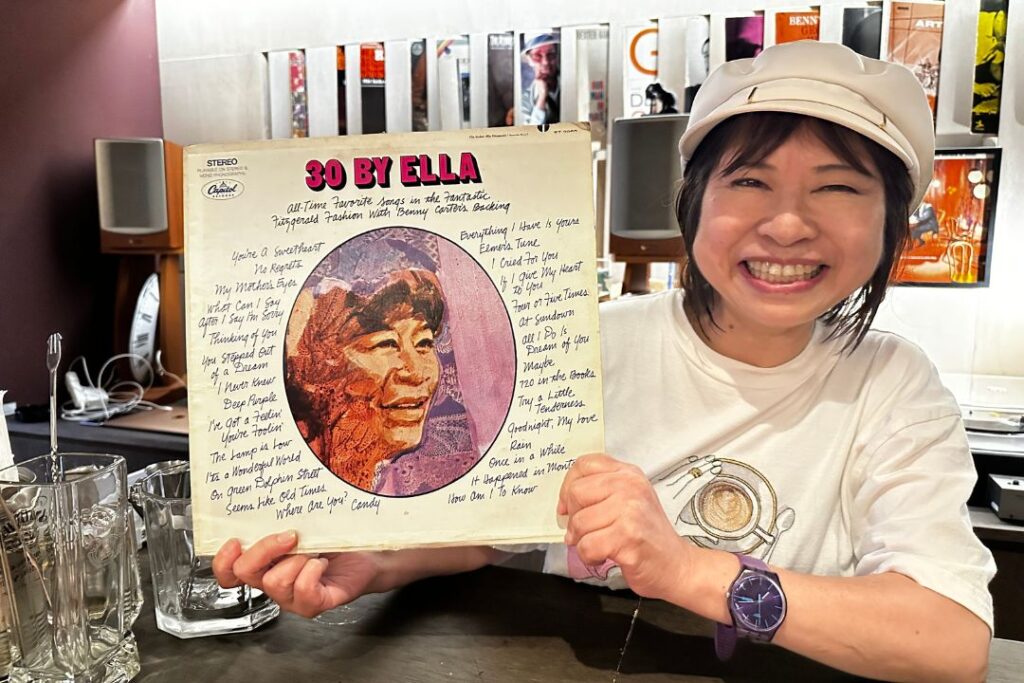 STEREO
PLAYABLE ON STEREO &
MONO PHONOGRAPHS
Capitol
30 BY ELLA
All-Time Favorite Songs in the Fantastic
Fitzgerald Fashion With Benny Carter's Backing
You're A Sweetheart
No Regrets
My Mother's Eyes
What Can I Say
After I Say I'm Sorry
Thinking of You
You Stepped Out
of a Dream
I Never Knew
Deep Purple
I've Got a Feelin'
You're Foolin'
The Lamp is Low
It's a Wonderful World
On Green Dolphin Street
Seems Like Old Times
Where Are You? Candy
Everything I Have is Yours
Elmer's Tune
I Cried For You
If I Give My Heart
to You
Four or Five Times
At Sundown
All I Do Is
Dream of You
Maybe
720 in the Books
Try a Little
Tenderness
Goodnight, My Love
Rain
Once in a While
It Happened in Mont
How Am I To Know
BENNY
ART